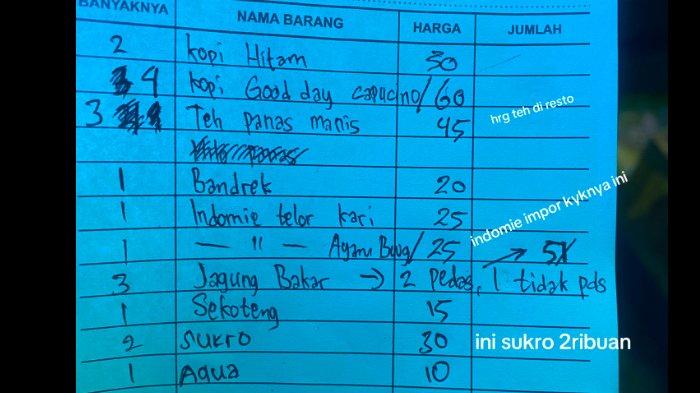 BANYAKNYA NAMA BARANG HARGA JUMLAH
2 kopi Hitam 30
4 kopi Good day capucino/ 60
3 Teh panas manis 45
hrg teh di resto
1 Bandrek 20
1 Indomie telor kari 25
indomie impor kyknya ini
1 — " — Ayam Bwg/ 25
3 Jagung Bakar → 2 pedas, 1 tidak pds
1 Sekoteng 15
2 Sukro 30
ini sukro 2ribuan
1 Aqua 10